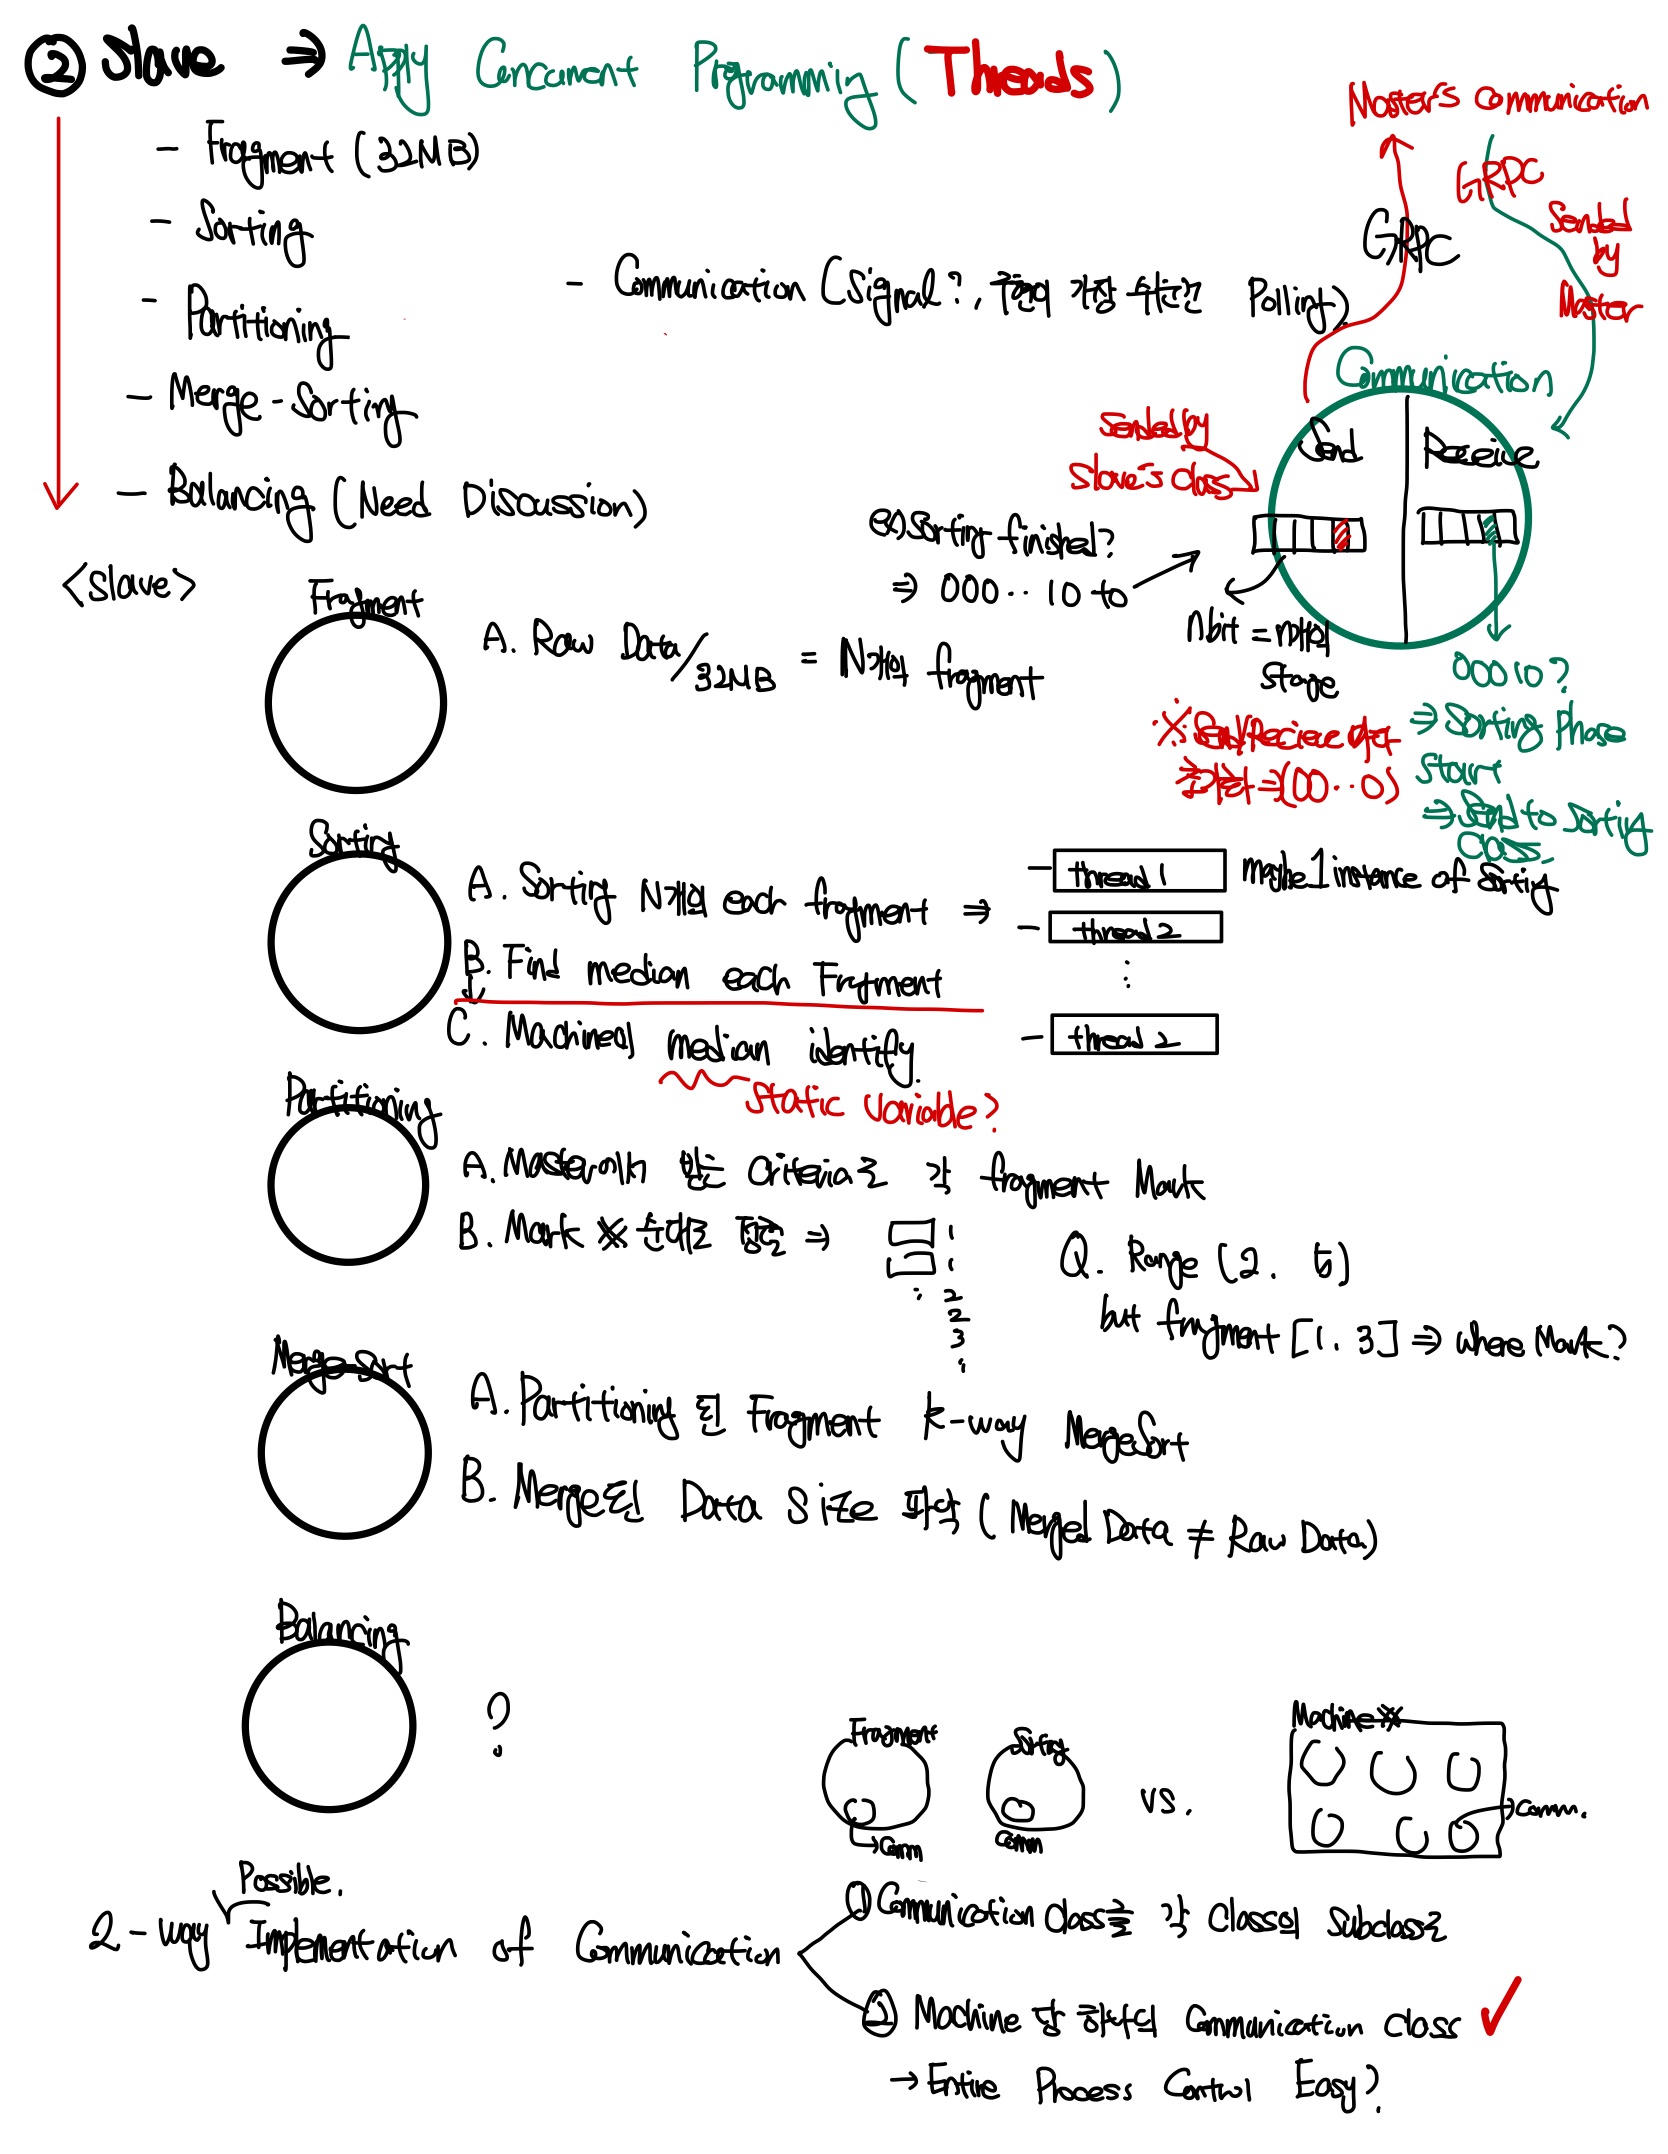 ② Slave ⇒ Apply Concurrent Programming (Threads)
- Fragment (32MB)
- Sorting
- Partitioning
- Merge-Sorting
- Balancing (Need Discussion)
- Communication (Signal?, 구현이 가장 쉬운건 Polling)
Master's Communication
GRPC
GRPC
Sended
by
Master
Communication
Send
Receive
Sended by
Slave's class
ex) Sorting finished?
⇒ 000··10 to
nbit = n개의
Stage
00010?
⇒ Sorting Phase
Start
⇒ Send to Sorting
Class
※ Send/Reciece
⇒(00··0)
<Slave>
Fragment
A. Raw Data/32MB = N개의 fragment
Sorting
A. Sorting N개의 each fragment ⇒
B. Find median each Fragment
C. Machine의 median identify.
Static variable?
- thread 1
maybe 1 instance of Sorting
- thread 2
- thread 2
Partitioning
A. Master에서 받는 Criteria로 각 fragment Mark
B. Mark 순대로 정렬 ⇒
1
1
2
2
3
Q. Range [2. 5]
but fragment [1. 3] ⇒ where Mark?
Merge-Sort
A. Partitioning 된 Fragment K-way MergeSort
B. Merge된 Data Size 파악 (Merged Data ≠ Raw Data)
Balancing
?
Fragment
Comm
Sorting
Comm
vs.
Machine
Comm.
Possible.
2-way Implementation of Communication
① Communication class를 각 Class의 Subclass로
② Machine 당 하나의 Communication class ✓
→ Entire Process Control Easy?